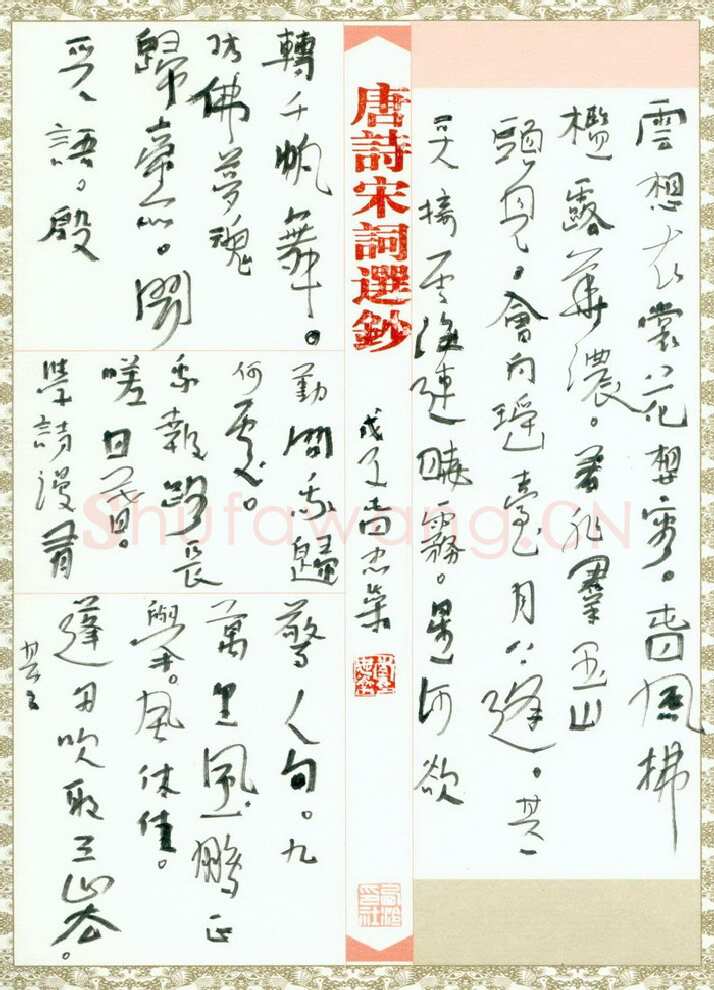 雲想衣裳花想容。春風拂
檻露華濃。若非羣玉山
頭見。會向瑤臺月下逢。其一
天接雲濤連曉霧。星河欲
唐詩宋詞選鈔
戊子尚忠
轉千帆舞。
彷佛夢魂
歸帝所。聞
天語。殷
勤問我歸
何處。
我報路長
嗟日暮。
學詩漫有
驚人句。九
萬里風鵬正
舉。風休住。
蓬舟吹取三山去。
其二
Shufawang.CN